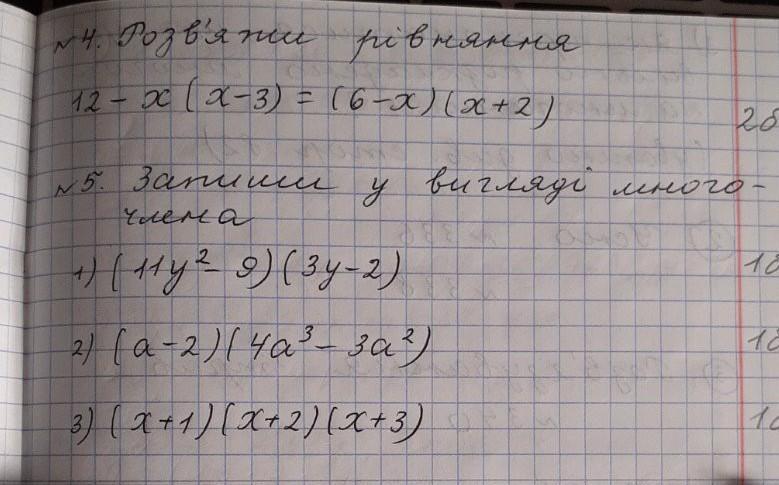 №4. Розв'яжи рівняння
12 - x (x-3) = (6-x)(x+2)
2б
№5. Запиши у вигляді много-
члена
1) (11y² - 9)(3y-2)
1б
2) (a-2)(4a³ - 3a²)
1б
3) (x+1)(x+2)(x+3)
1б